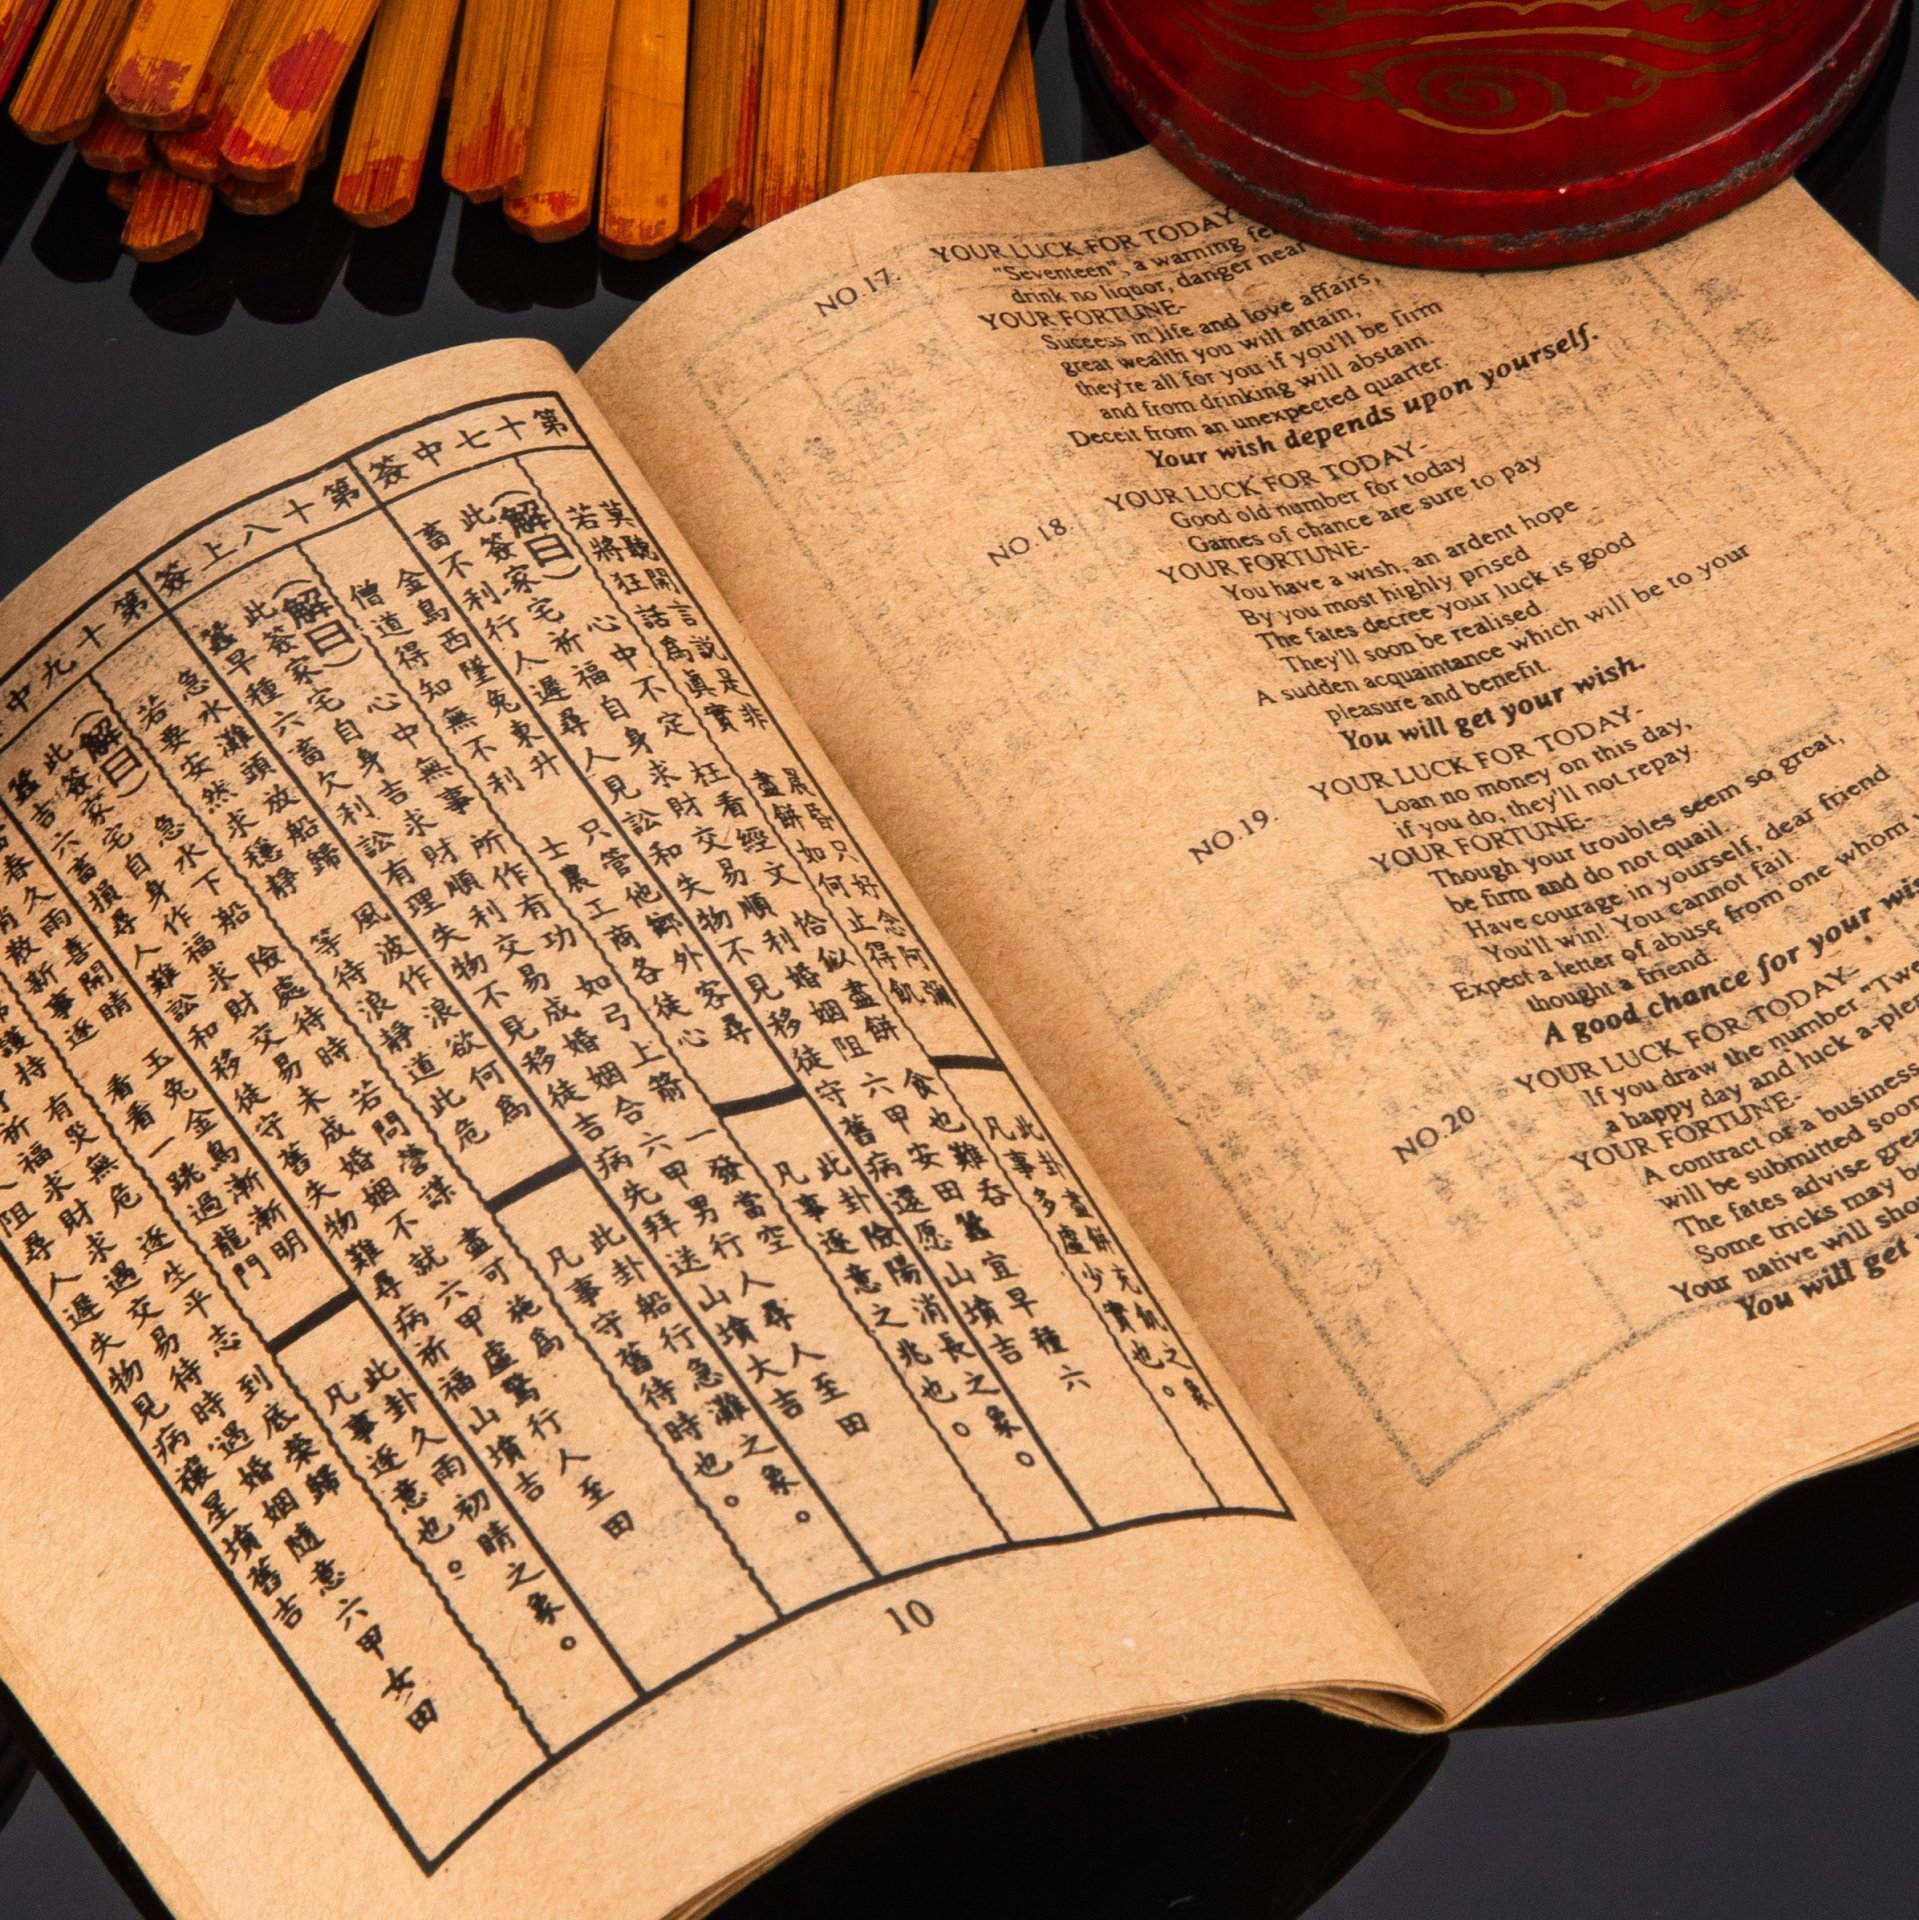 第十七中簽
莫聽閒言說是非 晨昏只好念阿彌 此卦畫餅充飢之象
若將狂話為眞實 畫餅如何止得飢 凡事多虛少實也。
(解曰) 心中不定 枉看經文 恰似畫餅 食也難吞
此簽家宅祈福自身求財交易順利婚姻阻六甲安田蠶宜早種六
畜不利行人遲尋人見訟和失物不見移徒守舊病還愿山墳吉
第十八上簽
金鳥西墜兔東升 只管他鄉外客尋 此卦險陽消長之象。
僧道得知無不利 士農工商各徒心 凡事逐意之兆也。
(解曰) 心中無事 所作有功 如弓上箭 一發當空
此簽家宅自身吉求財順利交易成婚姻合六甲男行人尋人至田
蠶早種六畜欠利訟有理失物不見移徒吉病先拜送山墳大吉
第十九中
急水灘頭放船歸 風波作浪欲何為 此卦船行急灘之象。
若要安然求穩靜 等待浪靜道此危 凡事守舊待時也。
(解曰) 急水下船 險處待時 若問營謀 盡可施為
此簽家宅自身作福求財交易未成婚姻不就六甲虛驚行人至田
蠶吉六畜損尋人難訟和移徒守舊失物難尋病祈福山墳吉
春久雨喜開晴 玉兔金鳥漸漸明 此卦久雨初晴之象。
消散新事逐 看看一跳過龍門 凡事逐意也。
護持 有災無危 逐生平志 到底榮歸
祈福求財求遇交易待時遇婚姻隨意六甲女田
阻尋人遲失物見病禳星墳舊吉
10
NO.17.
YOUR LUCK FOR TODAY
"Seventeen", a warning
drink no liquor, danger near
YOUR FORTUNE-
Success in life and love affairs,
great wealth you will attain,
they're all for you if you'll be firm
and from drinking will abstain.
Deceit from an unexpected quarter.
Your wish depends upon yourself.
NO.18.
YOUR LUCK FOR TODAY-
Good old number for today
Games of chance are sure to pay
YOUR FORTUNE-
You have a wish, an ardent hope
By you most highly prised
The fates decree your luck is good
They'll soon be realised.
A sudden acquaintance which will be to your
pleasure and benefit.
You will get your wish.
NO.19.
YOUR LUCK FOR TODAY-
Loan no money on this day,
if you do, they'll not repay.
YOUR FORTUNE-
Though your troubles seem so great,
be firm and do not quail.
Have courage in yourself, dear friend
You'll win! You cannot fail.
Expect a letter of abuse from one whom
thought a friend.
A good chance for your
NO.20
YOUR LUCK FOR TODAY-
If you draw the number
a happy day and luck
YOUR FORTUNE-
A contract or a business
will be submitted soon
The fates advise
Some tricks may
Your native will
You will get